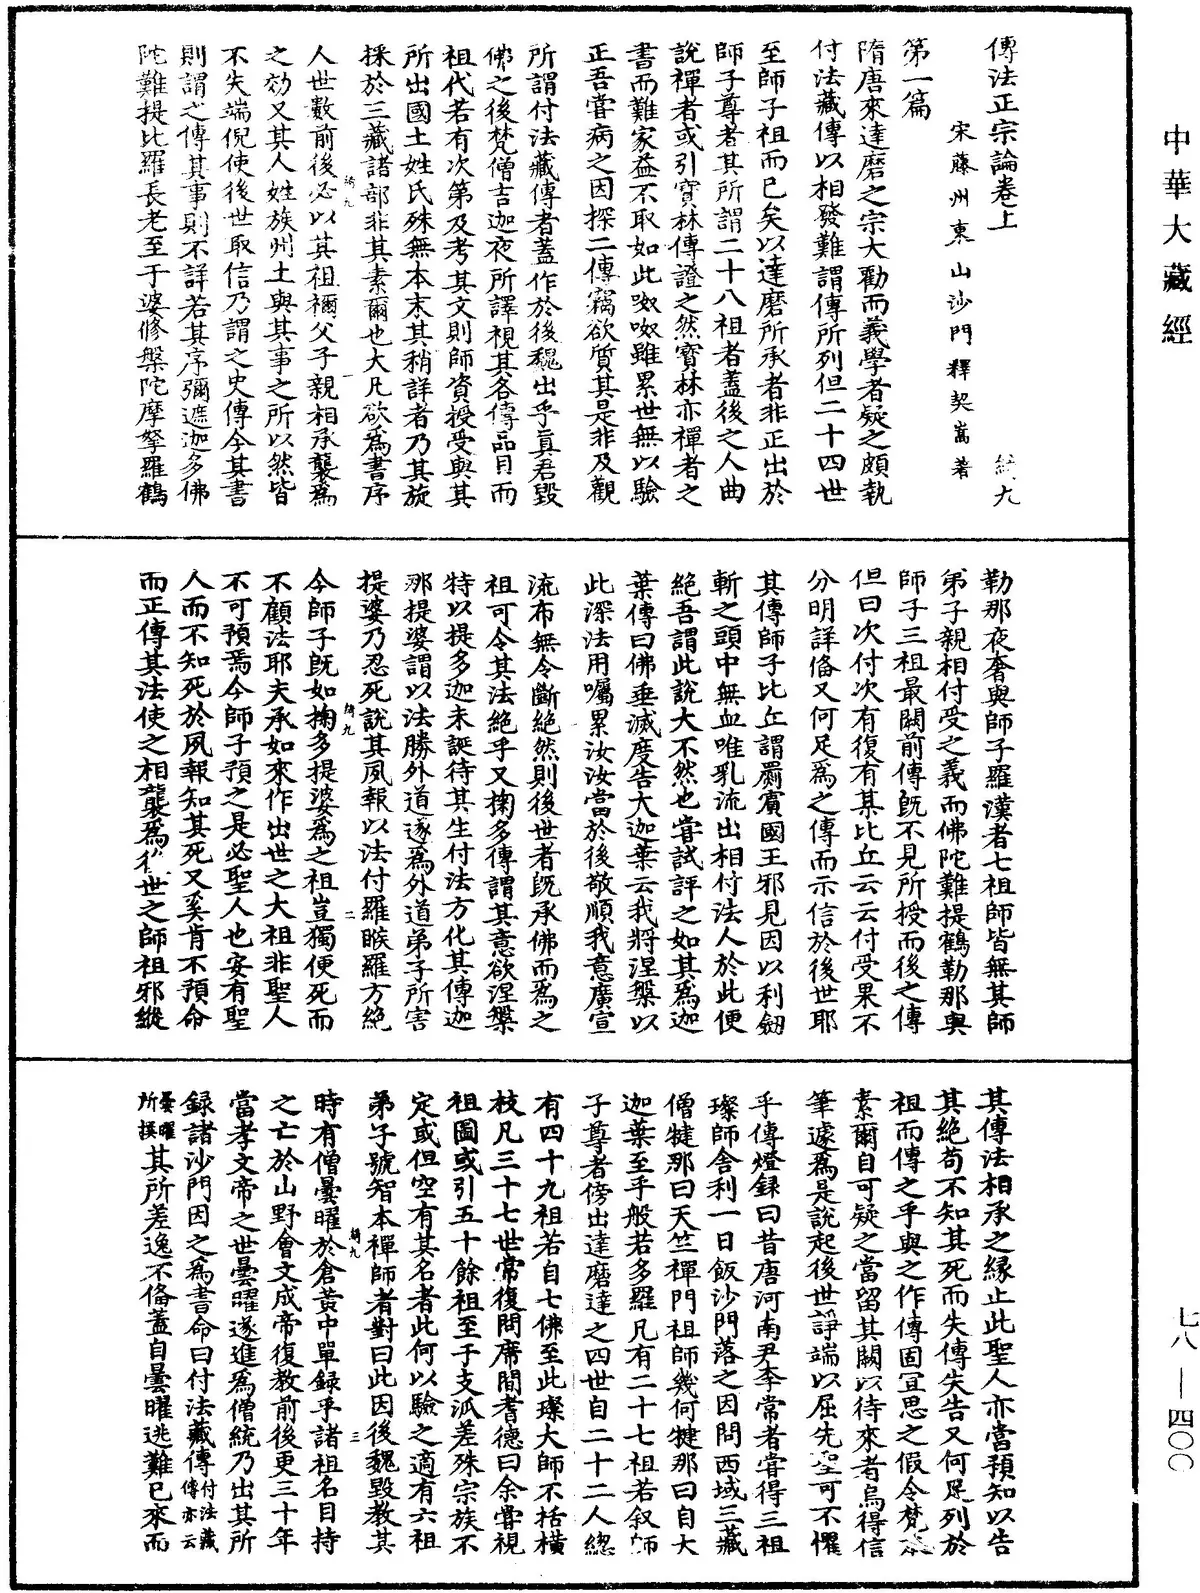 中華大藏經
傳法正宗論卷上
綺九
宋藤州東山沙門釋契嵩著
第一篇
隋唐來達磨之宗大勸而義學者疑之頗執
付法藏傳以相發難謂傳所列但二十四世
至師子祖而已矣以達磨所承者非正出於
師子尊者其所謂二十八祖者蓋後之人曲
說禪者或引寶林傳證之然寶林亦禪者之
書而難家益不取如此呶呶雖累世無以驗
正吾嘗病之因探二傳竊欲質其是非及觀
所謂付法藏傳者蓋作於後魏出乎真君毀
佛之後梵僧吉迦夜所譯視其各傳品目而
祖代若有次第及考其文則師資授受與其
所出國土姓氏殊無本末其稍詳者乃其旋
採於三藏諸部非其素爾也大凡欲為書序
人世數前後必以其祖禰父子親相承襲為
之効又其人姓族州土與其事之所以然皆
不失端倪使後世取信乃謂之史傳今其書
則謂之傳其事則不詳若其序彌遮迦多佛
陀難提比羅長老至于婆修槃陀摩拏羅鶴
勒那夜奢與師子羅漢者七祖師皆無其師
弟子親相付受之義而佛陀難提鶴勒那與
師子三祖最闕前傳既不見所授而後之傳
但曰次付次有復有某比丘云云付受果不
分明詳俻又何足為之傳而示信於後世耶
其傳師子比丘謂罽賓國王邪見因以利劒
斬之頭中無血唯乳流出相付法人於此便
絕吾謂此說大不然也嘗試評之如其為迦
葉傳曰佛垂滅度告大迦葉云我將涅槃以
此深法用囑累汝汝當於後敬順我意廣宣
流布無令斷絕然則後世者既承佛而為之
祖可令其法絕乎又掬多傳謂其意欲涅槃
特以提多迦未誕待其生付法方化其傳迦
那提婆謂以法勝外道遂為外道弟子所害
提婆乃忍死說其夙報以法付羅睺羅方絕
今師子既如掬多提婆為之祖豈獨便死而
不顧法耶夫承如來作出世之大祖非聖人
不可預焉今師子預之是必聖人也安有聖
人而不知死於夙報知其死又奚肯不預命
而正傳其法使之相襲為後世之師祖邪縱
其傳法相承之緣止此聖人亦當預知以告
其絕苟不知其死而失傳失告又何足列於
祖而傳之乎與之作傳固宜思之假令梵本
素爾自可疑之當留其闕以待來者烏得信
筆遽為是說起後世諍端以屈先聖可不懼
乎傳燈錄曰昔唐河南尹李常者嘗得三祖
璨師舍利一日飯沙門落之因問西域三藏
僧犍那曰天竺禪門祖師幾何犍那曰自大
迦葉至乎般若多羅凡有二十七祖若叙師
子尊者傍出達磨達之四世自二十二人緫
有四十九祖若自七佛至此璨大師不括橫
枝凡三十七世常復問席間耆德曰余嘗視
祖圖或引五十餘祖至于支派差殊宗族不
定或但空有其名者此何以驗之適有六祖
弟子號智本禪師者對曰此因後魏毀教其
時有僧曇曜於倉黃中單錄乎諸祖名目持
之亡於山野會文成帝復教前後更三十年
當孝文帝之世曇曜遂進為僧統乃出其所
錄諸沙門因之為書命曰付法藏傳付法藏傳亦云
曇曜所撰其所差逸不俻蓋自曇曜逃難已來而
綺九 一
綺九 二
綺九 三
七八—四〇〇